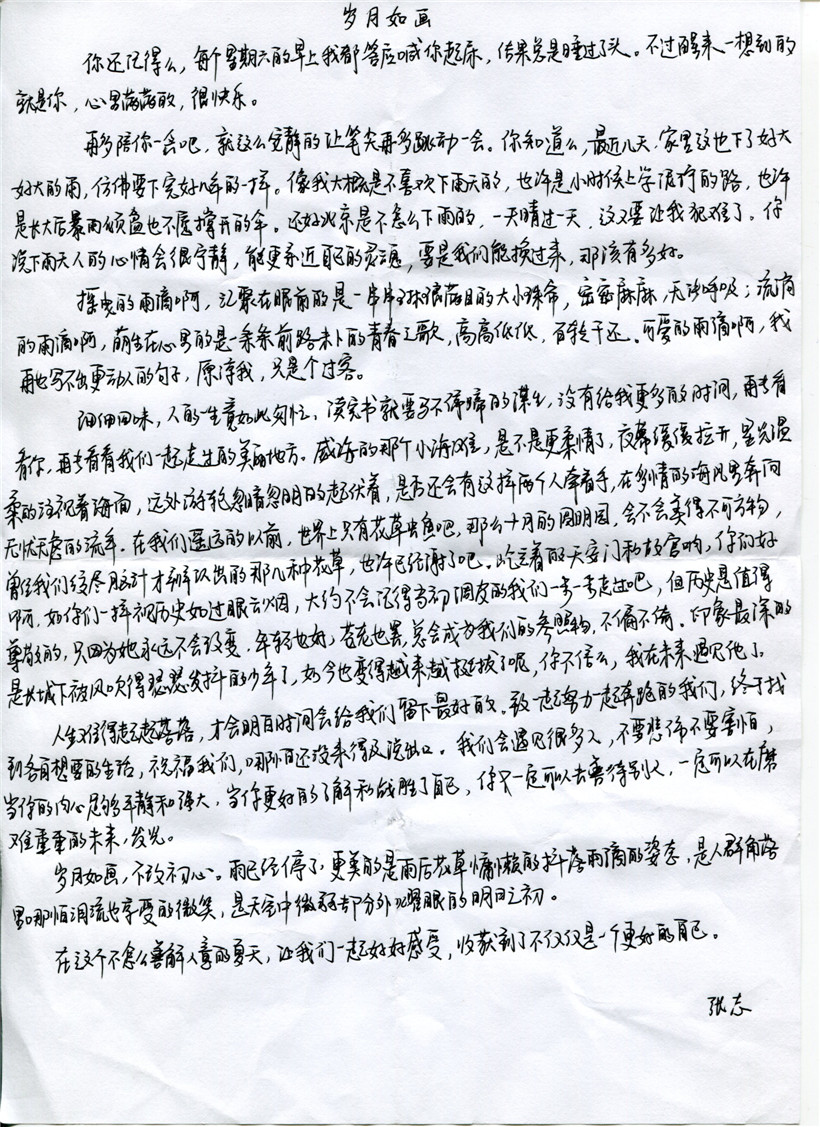 岁月如画
你还记得么，每个星期六的早上我都答应喊你起床，结果总是睡过了头。不过醒来一想到的
就是你，心里满满的，很快乐。
再多陪你一会吧，就这么安静的让笔尖再多跳动一会。你知道么，最近几天，家里这也下了好大
好大的雨，仿佛要下完好几年的一样。像我大概是不喜欢下雨天的，也许是小时候上学泥泞的路，也许
是长大后暴雨倾盆也不愿撑开的伞。还好北京是不怎么下雨的，一天晴过一天，这又要让我犯难了。你
说下雨天人的心情会很宁静，能更亲近自己的灵魂，要是我们能换过来，那该有多好。
摇曳的雨滴啊，汇聚在眼前的是一串串琳琅满目的大小珠帘，密密麻麻，无法呼吸；流淌
的雨滴啊，萌生在心里的是一条条前路未卜的青春之歌，高高低低，百转千还。可爱的雨滴啊，我
再也写不出更动人的句子，原谅我，只是个过客。
细细回味，人的一生竟如此匆忙，读完书就要马不停蹄的谋生，没有给我更多的时间，再去看
看你，再去看看我们一起走过的美丽地方。威海的那个小海滩，是不是更柔情了，夜幕缓缓拉开，星光温
柔的注视着海面，远处游轮忽暗忽明的起伏着，是否还会有这样两个人牵着手，在多情的海风里奔向
无忧无虑的流年。在我们遥远的以前，世界上只有花草虫鱼吧，那么十月的圆明园，会不会美得不可方物，
曾经我们绞尽脑汁才辨认出的那几种花草，也许已经谢了吧。屹立着的天安门和故宫哟，你们好
啊，如你们一样视历史如过眼云烟，大约不会记得当初调皮的我们一步一步走过吧，但历史是值得
尊敬的，只因为她永远不会改变，年轻也好，苍老也罢，总会成为我们的参照物，不偏不倚。印象最深的
是长城下被风吹得瑟瑟发抖的少年了，如今也变得越来越挺拔了呢，你不信么，我在未来遇见他了。
人生难得起起落落，才会明白时间会给我们留下最好的。致一起努力一起奔跑的我们，终于找
到各自想要的生活，祝福我们，哪怕还没来得及说出口。我们会遇见很多人，不要悲伤不要害怕，
当你的内心足够平静和强大，当你更好的了解和战胜了自己，你就一定可以去善待别人，一定可以在磨
难重重的未来，发光。
岁月如画，不改初心。雨已经停了，更美的是雨后花草慵懒的抖落雨滴的姿态，是人群角落
里哪怕泪流也享受的微笑，是天空中微弱却分外耀眼的明日之初。
在这个不怎么善解人意的夏天，让我们一起好好感受，收获到了不仅仅是一个更好的自己。
张志